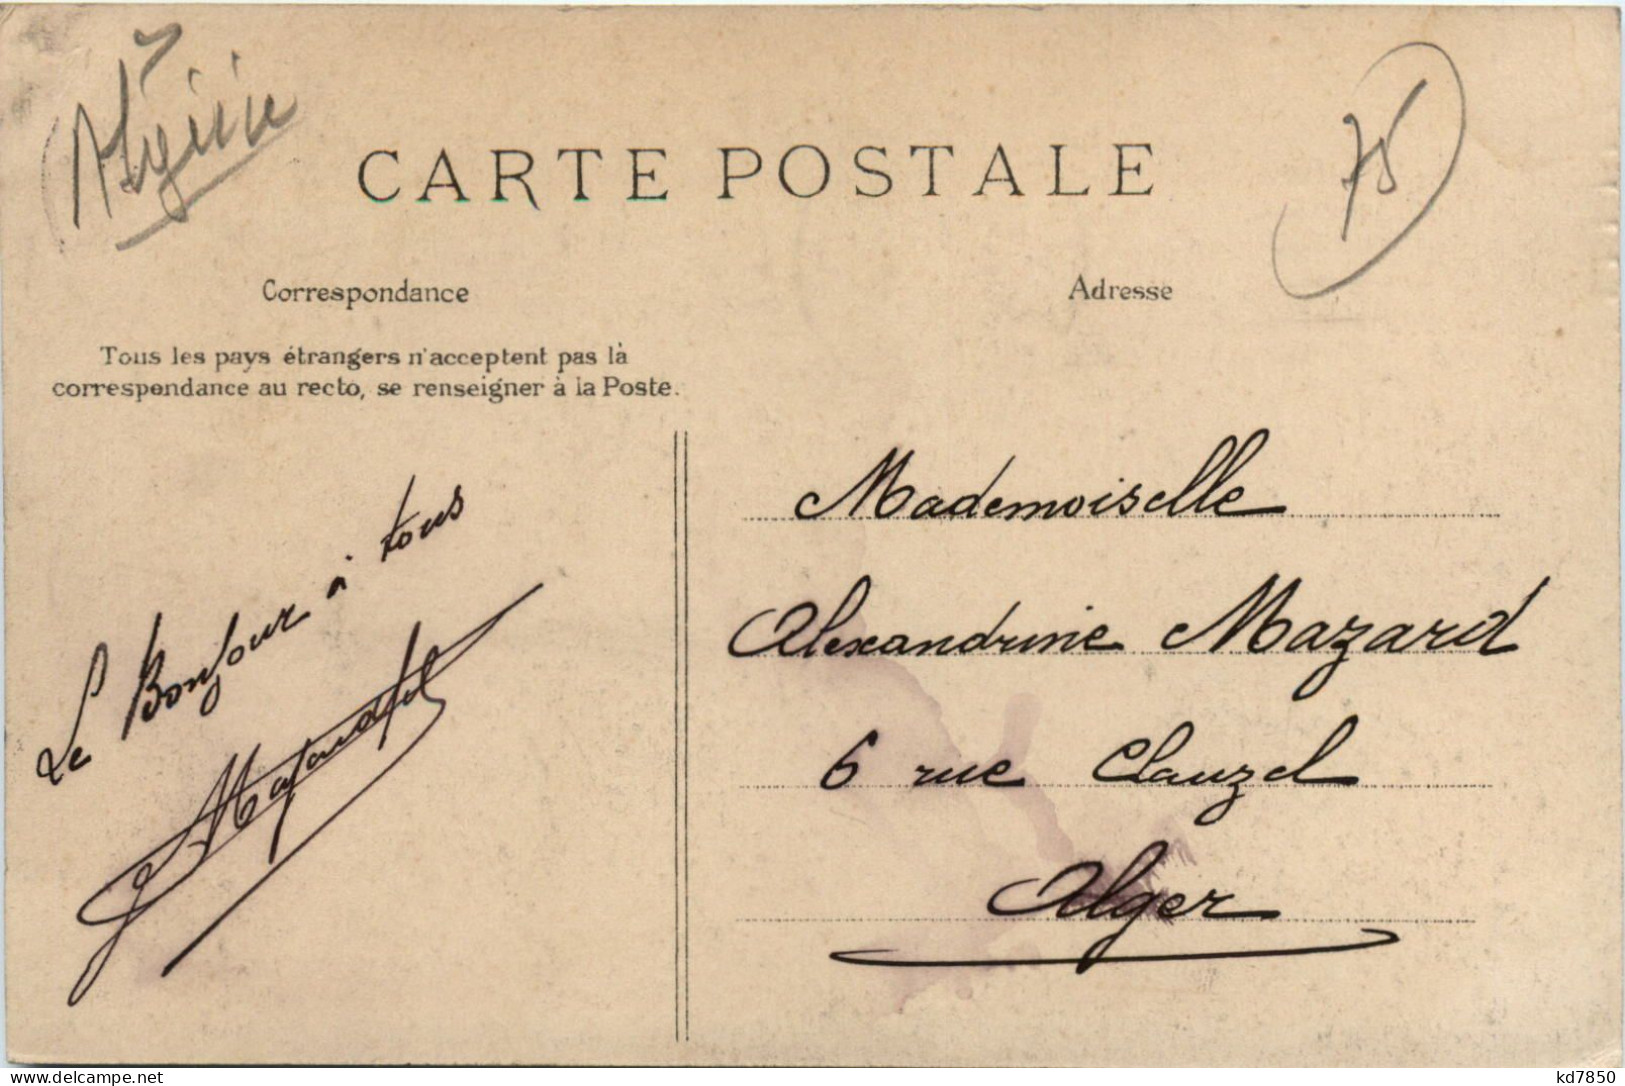 75
CARTE POSTALE
Correspondance
Adresse
Tous les pays étrangers n'acceptent pas là
correspondance au recto, se renseigner à la Poste.
Le Bonjour à tous
Mademoiselle
Alexandrine Mazard
6 rue Clauzel
Alger
delcampe.net
kd7850